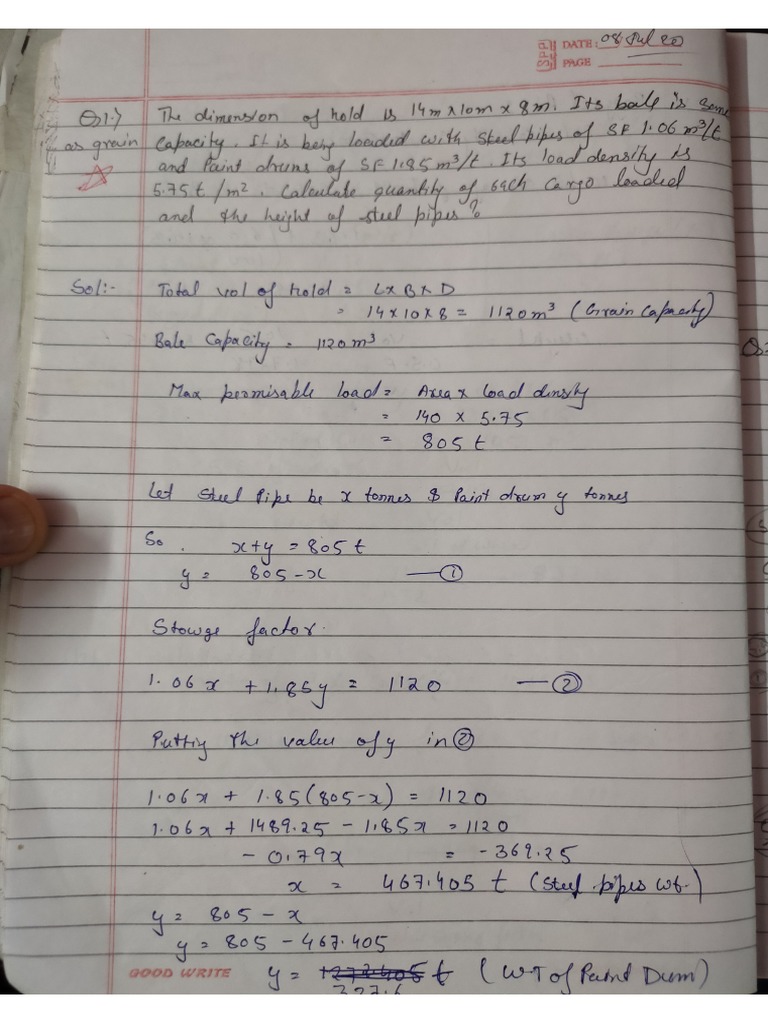 SPP DATE: 08 Jul 20
PAGE
Q1.) The dimension of hold is 14m x 10m x 8m. Its bale is same
as grain capacity. It is being loaded with steel pipes of SF 1.06 m³/t
and Paint drums of SF 1.85 m³/t. Its load density is
5.75 t/m². Calculate quantity of each cargo loaded
and the height of steel pipes?
Sol:- Total vol of hold = L x B x D
= 14 x 10 x 8 = 1120 m³ (Grain Capacity)
Bale Capacity = 1120 m³
Max permisable load = Area x load density
= 140 x 5.75
= 805 t
Let Steel Pipe be x tonnes & Paint drum y tonnes
So. x+y = 805 t
y = 805 - x —①
Stowge factor.
1.06x + 1.85y = 1120 —②
Puttig the value of y in ②
1.06x + 1.85(805-x) = 1120
1.06x + 1489.25 - 1.85x = 1120
- 0.79x = -369.25
x = 467.405 t (Steel pipes wt.)
y = 805 - x
y = 805 - 467.405
GOOD WRITE y = t (WT of Paint Dum)